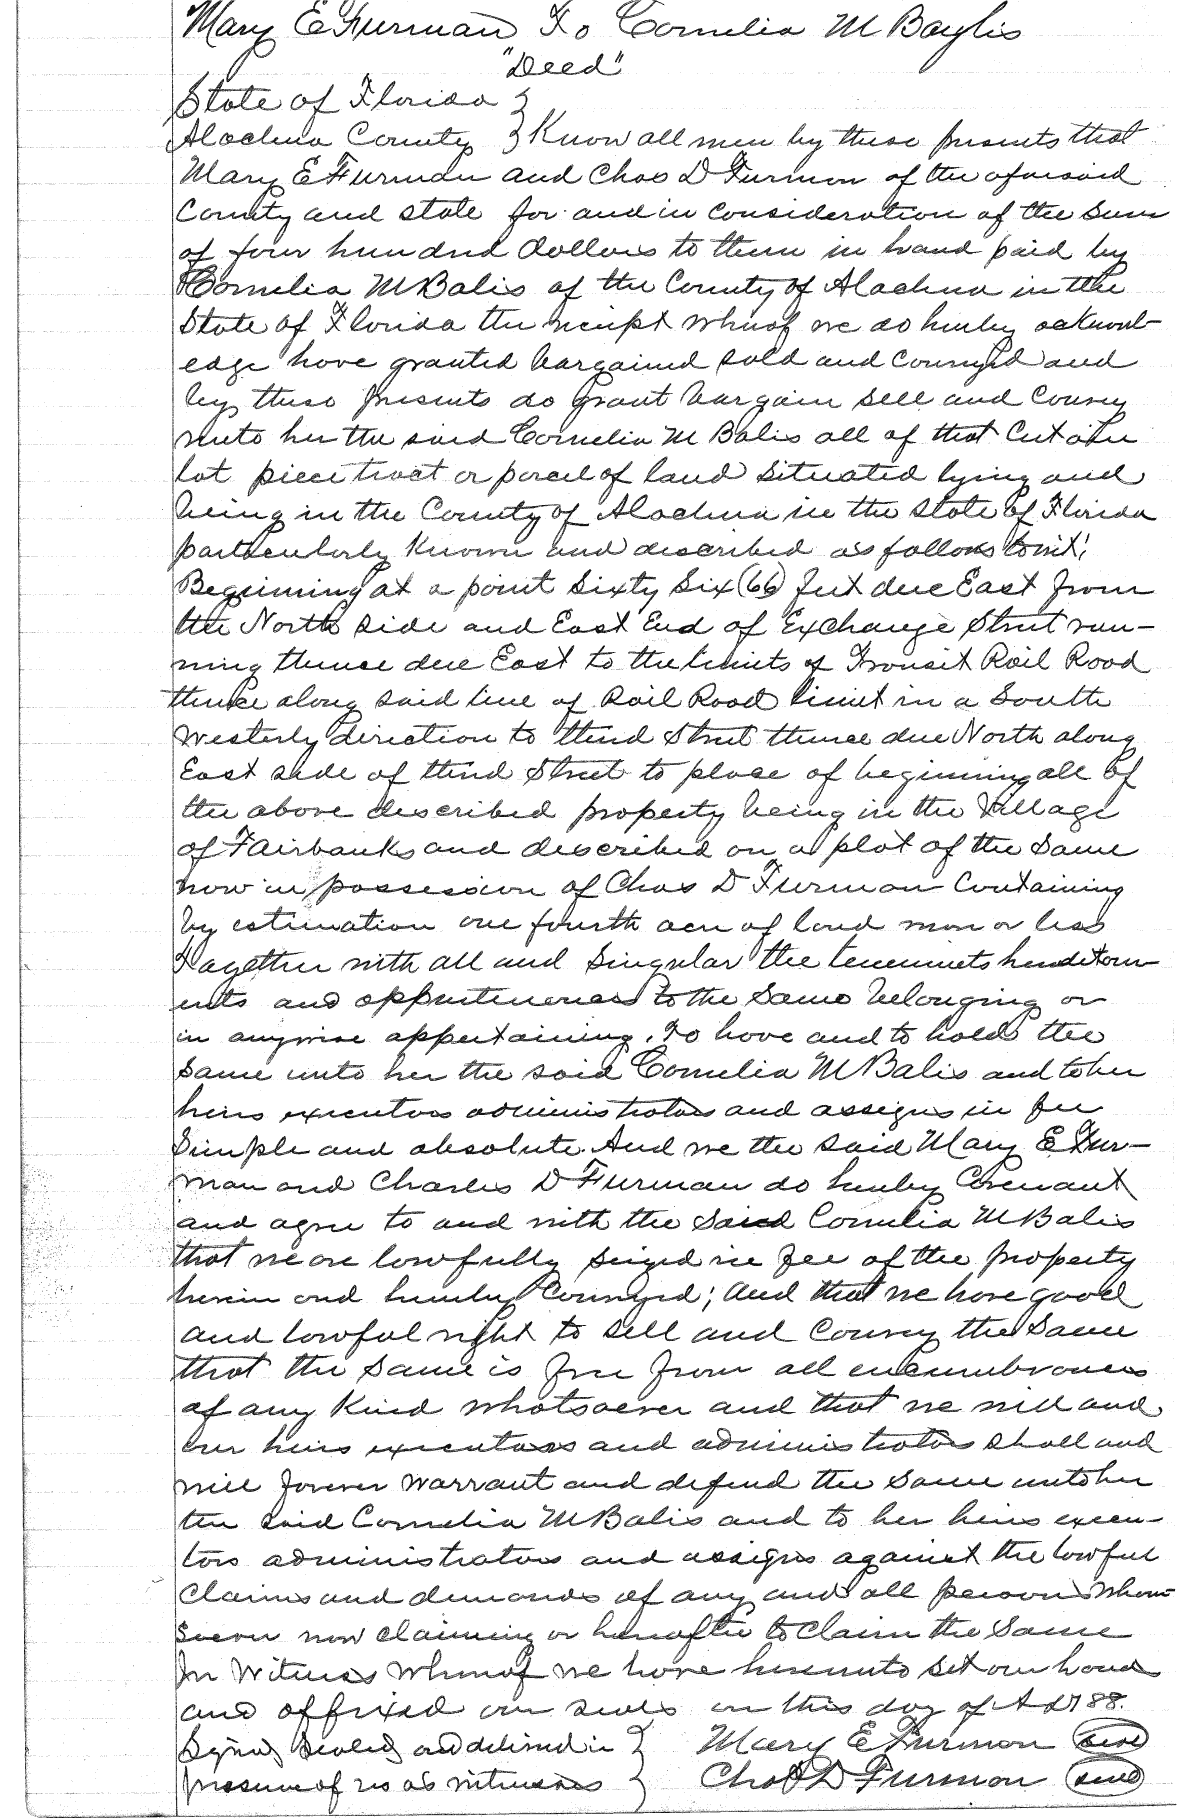 Mary E Furman To Cornelia M Baylis
"Deed"
State of Florida }
Alachua County } Know all men by these presents that
Mary E Furman and Chas D Furman of the aforesaid
County and state for and in consideration of the sum
of four hundred dollars to them in hand paid by
Cornelia M Balis of the County of Alachua in the
State of Florida the receipt whereof we do hereby acknowl-
edge have granted bargained sold and conveyed and
by these presents do grant bargain sell and convey
unto her the said Cornelia M Balis all of that Certain
lot piece tract or parcel of land situated lying and
being in the County of Alachua in the State of Florida
particularly known and described as follows towit;
Beginning at a point Sixty Six (66) feet due East from
the North side and East End of Exchange Street run-
ning thence due East to the limits of Transit Rail Road
thence along said line of Rail Road limit in a South
Westerly direction to third Street thence due North along
East side of third Street to place of beginning all of
the above described property being in the Village
of Fairbanks and described on a plat of the Same
now in possession of Chas D Furman Containing
by estimation one fourth acre of land more or less
Together with all and Singular the tenements heredetam-
ents and appurtenances to the Same belonging or
in anywise appertaining. To have and to hold the
Same unto her the said Cornelia M Balis and to her
heirs executors administrators and assigns in fee
Simple and absolute. And we the said Mary E Fur-
man and Charles D Furman do hereby Covenant
and agree to and with the said Cornelia M Balis
that we are lawfully seized in fee of the property
herein and hereby Conveyed; and that we have good
and lawful right to sell and Convey the Same
that the Same is free from all encumbrances
of any Kind whatsoever and that we will and
our heirs executors and administrators shall and
will forever warrant and defend the Same unto her
the said Cornelia M Balis and to her heirs execu-
tors administrators and assigns against the lawful
Claims and demands of any and all persons Whom-
soever now claiming or hereafter to Claim the Same
In Witness Whereof we have hereunto set our hand
and affixed our seals on this day of A D 188.
Signed Sealed and delivered in } Mary E Furman seal
presence of us as witnesses } Chas D Furman seal